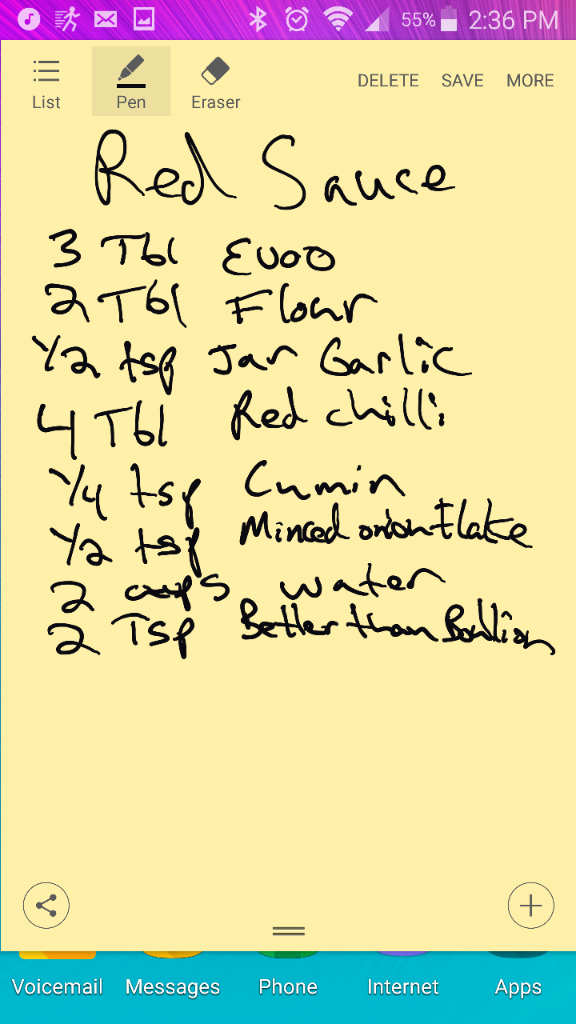 55% 2:36 PM
List Pen Eraser DELETE SAVE MORE
Red Sauce
3 Tbl Evoo
2 Tbl Flour
1/2 tsp Jar Garlic
4 Tbl Red chilli
1/4 tsp Cumin
1/2 tsp Minced onion Flake
2 cups water
2 Tsp Better than Boullion
Voicemail Messages Phone Internet Apps